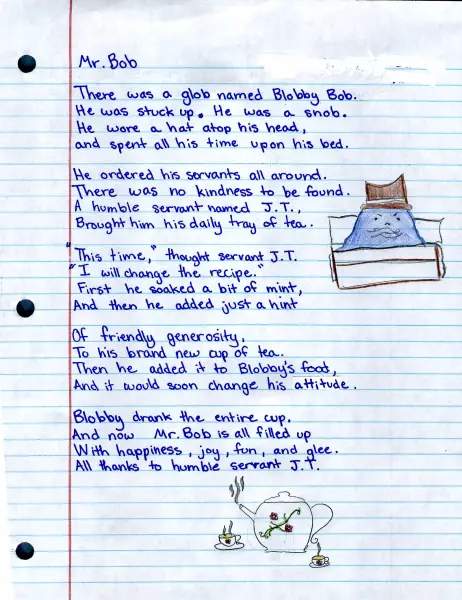 Mr. Bob
There was a glob named Blobby Bob.
He was stuck up. He was a snob.
He wore a hat atop his head,
and spent all his time upon his bed.
He ordered his servants all around.
There was no kindness to be found.
A humble servant named J.T.,
Brought him his daily tray of tea.
"This time," thought servant J.T.
"I will change the recipe."
First he soaked a bit of mint,
And then he added just a hint
Of friendly generosity,
To his brand new cup of tea.
Then he added it to Blobby's food,
And it would soon change his attitude.
Blobby drank the entire cup.
And now Mr. Bob is all filled up
With happiness, joy, fun, and glee.
All thanks to humble servant J.T.